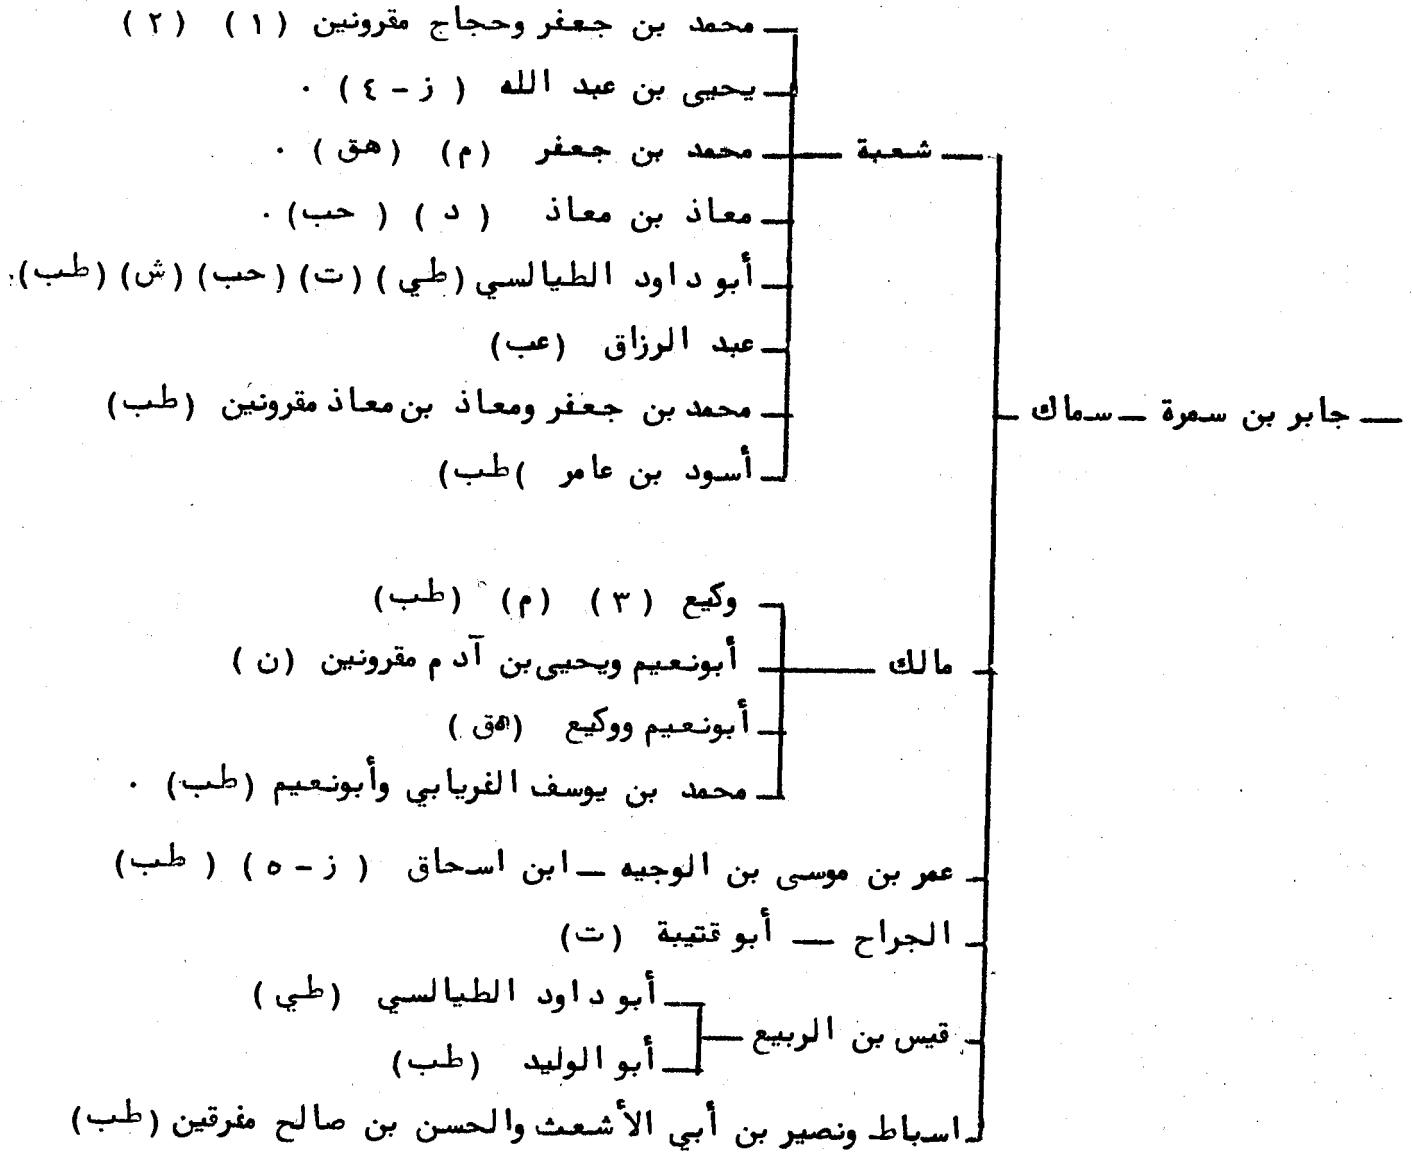 محمد بن جعفر وحجاج مقرونين (١) (٢)
يحيى بن عبد الله (ز - ٤) .
شعبة
محمد بن جعفر (م) (هق) .
معاذ بن معاذ (د) (حب) .
أبو داود الطيالسي (طي) (ت) (حب) (ش) (طب) .
عبد الرزاق (عب)
جابر بن سمرة — سماك
محمد بن جعفر ومعاذ بن معاذ مقرونين (طب)
أسود بن عامر )طب)
وكيع (٣) (م) (طب)
مالك
أبونعيم ويحيى بن آدم مقرونين (ن)
أبونعيم ووكيع (هق)
محمد بن يوسف الفريابي وأبونعيم (طب) .
عمر بن موسى بن الوجيه — ابن اسحاق (ز - ٥) (طب)
الجراح — أبو قتيبة (ت)
أبو داود الطيالسي (طي)
قيس بن الربيع
أبو الوليد (طب)
اسباط ونصير بن أبي الأشعث والحسن بن صالح مفرقين (طب)